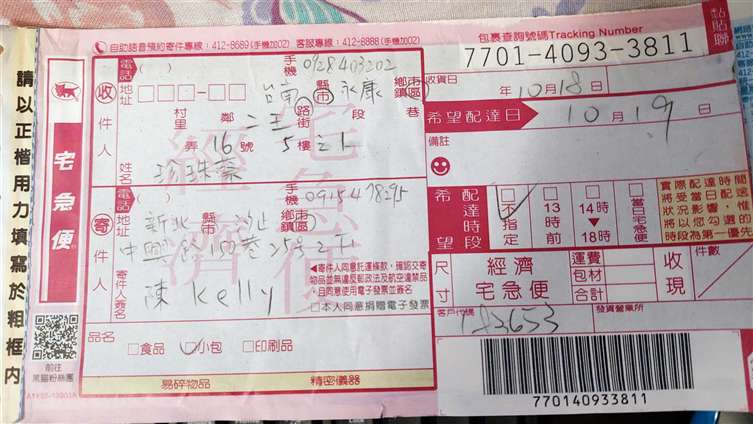 請以正楷用力填寫於粗框內
宅急便
前往
黑貓粉絲團
自助語音預約寄件專線：412-8689(手機加02) 客服專線：412-8888(手機加02)
包裹查詢號碼Tracking Number
7701-4093-3811
黏貼聯
收件人
電話 ( ) 手機 0928403202
地址 台南 縣市 永康 鄉市鎮區
村里 鄰 二王 路街 段 巷
弄 16 號 5 樓 之1
姓名 珍珠蓁
收貨日 年 10月18日
希望配達日 10月19日
備註
寄件人
電話 ( ) 手機
地址 新北 縣市 汐止 鄉市鎮區
中興路
寄件人簽名 陳 Kelly
◀寄件人同意託運條款，確認交寄
物品並無違反郵政法及航空違禁品
，且同意使用電子發票並簽名
□本人同意捐贈電子發票
希望配達時段
不指定
13時前
14時▼18時
當日宅急便
實際配達時間
將受當日配送
狀況影響，惟
將以您勾選的
時段為第一優先
尺寸
經濟
宅急便
運費
包材
合計
收現
件數
客戶代碼
發貨營業所
品名
□食品 □小包 □印刷品
易碎物品 精密儀器
770140933811
經濟宅急便